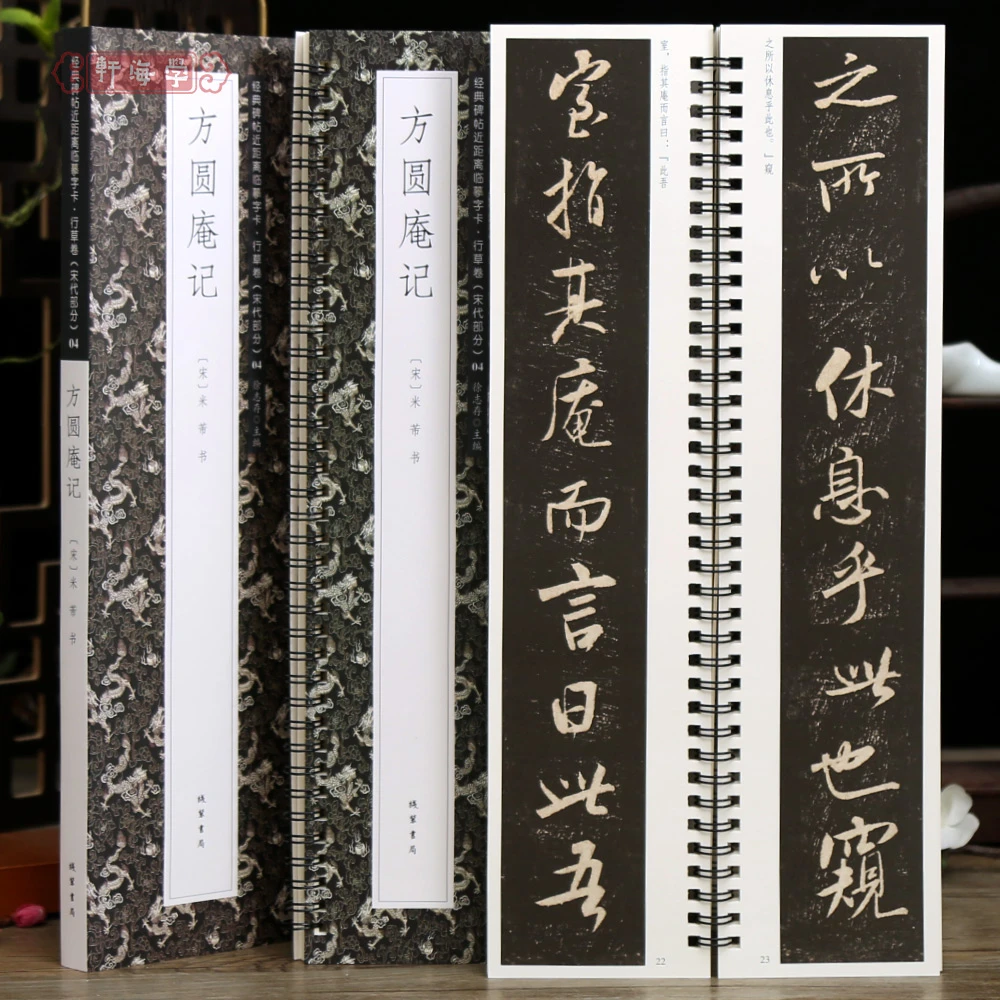 轩海学
经典碑帖近距离临摹字卡·行草卷(宋代部分) 04
方圆庵记
〔宋〕米芾书
线装书局
经典碑帖近距离临摹字卡·行草卷(宋代部分) 04 徐志存◎主编
方圆庵记
〔宋〕米芾书
经典碑帖近距离临摹字卡·行草卷(宋代部分) 04 徐志存◎主编
方圆庵记
〔宋〕米芾书
线装书局
室指其庵而言曰此吾
室,指其庵而言曰:「此吾
22
之所以休息乎此也。」窥
之所以休息乎此也窥
23